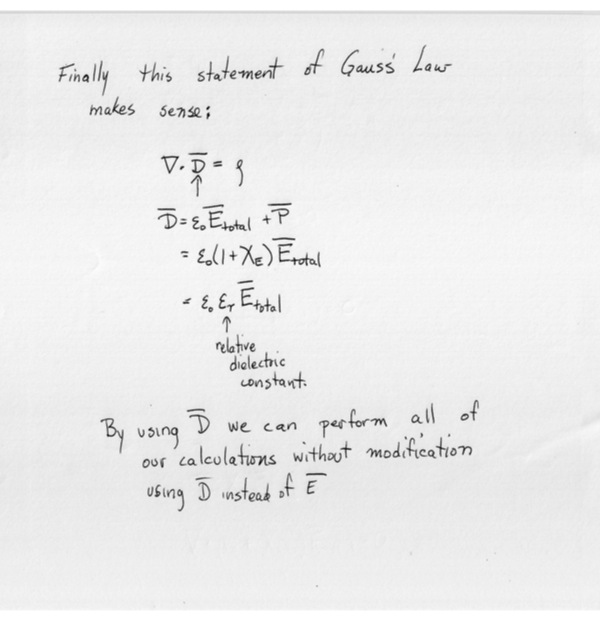 Finally this statement of Gauss' Law
makes sense;
∇·D̅ = ρ
↑
D̅ = ε₀E̅total + P̅
= ε₀(1+χE)E̅total
= ε₀ εr E̅total
↑
relative
dielectric
constant.
By using D̅ we can perform all of
our calculations without modification
using D̅ instead of E̅